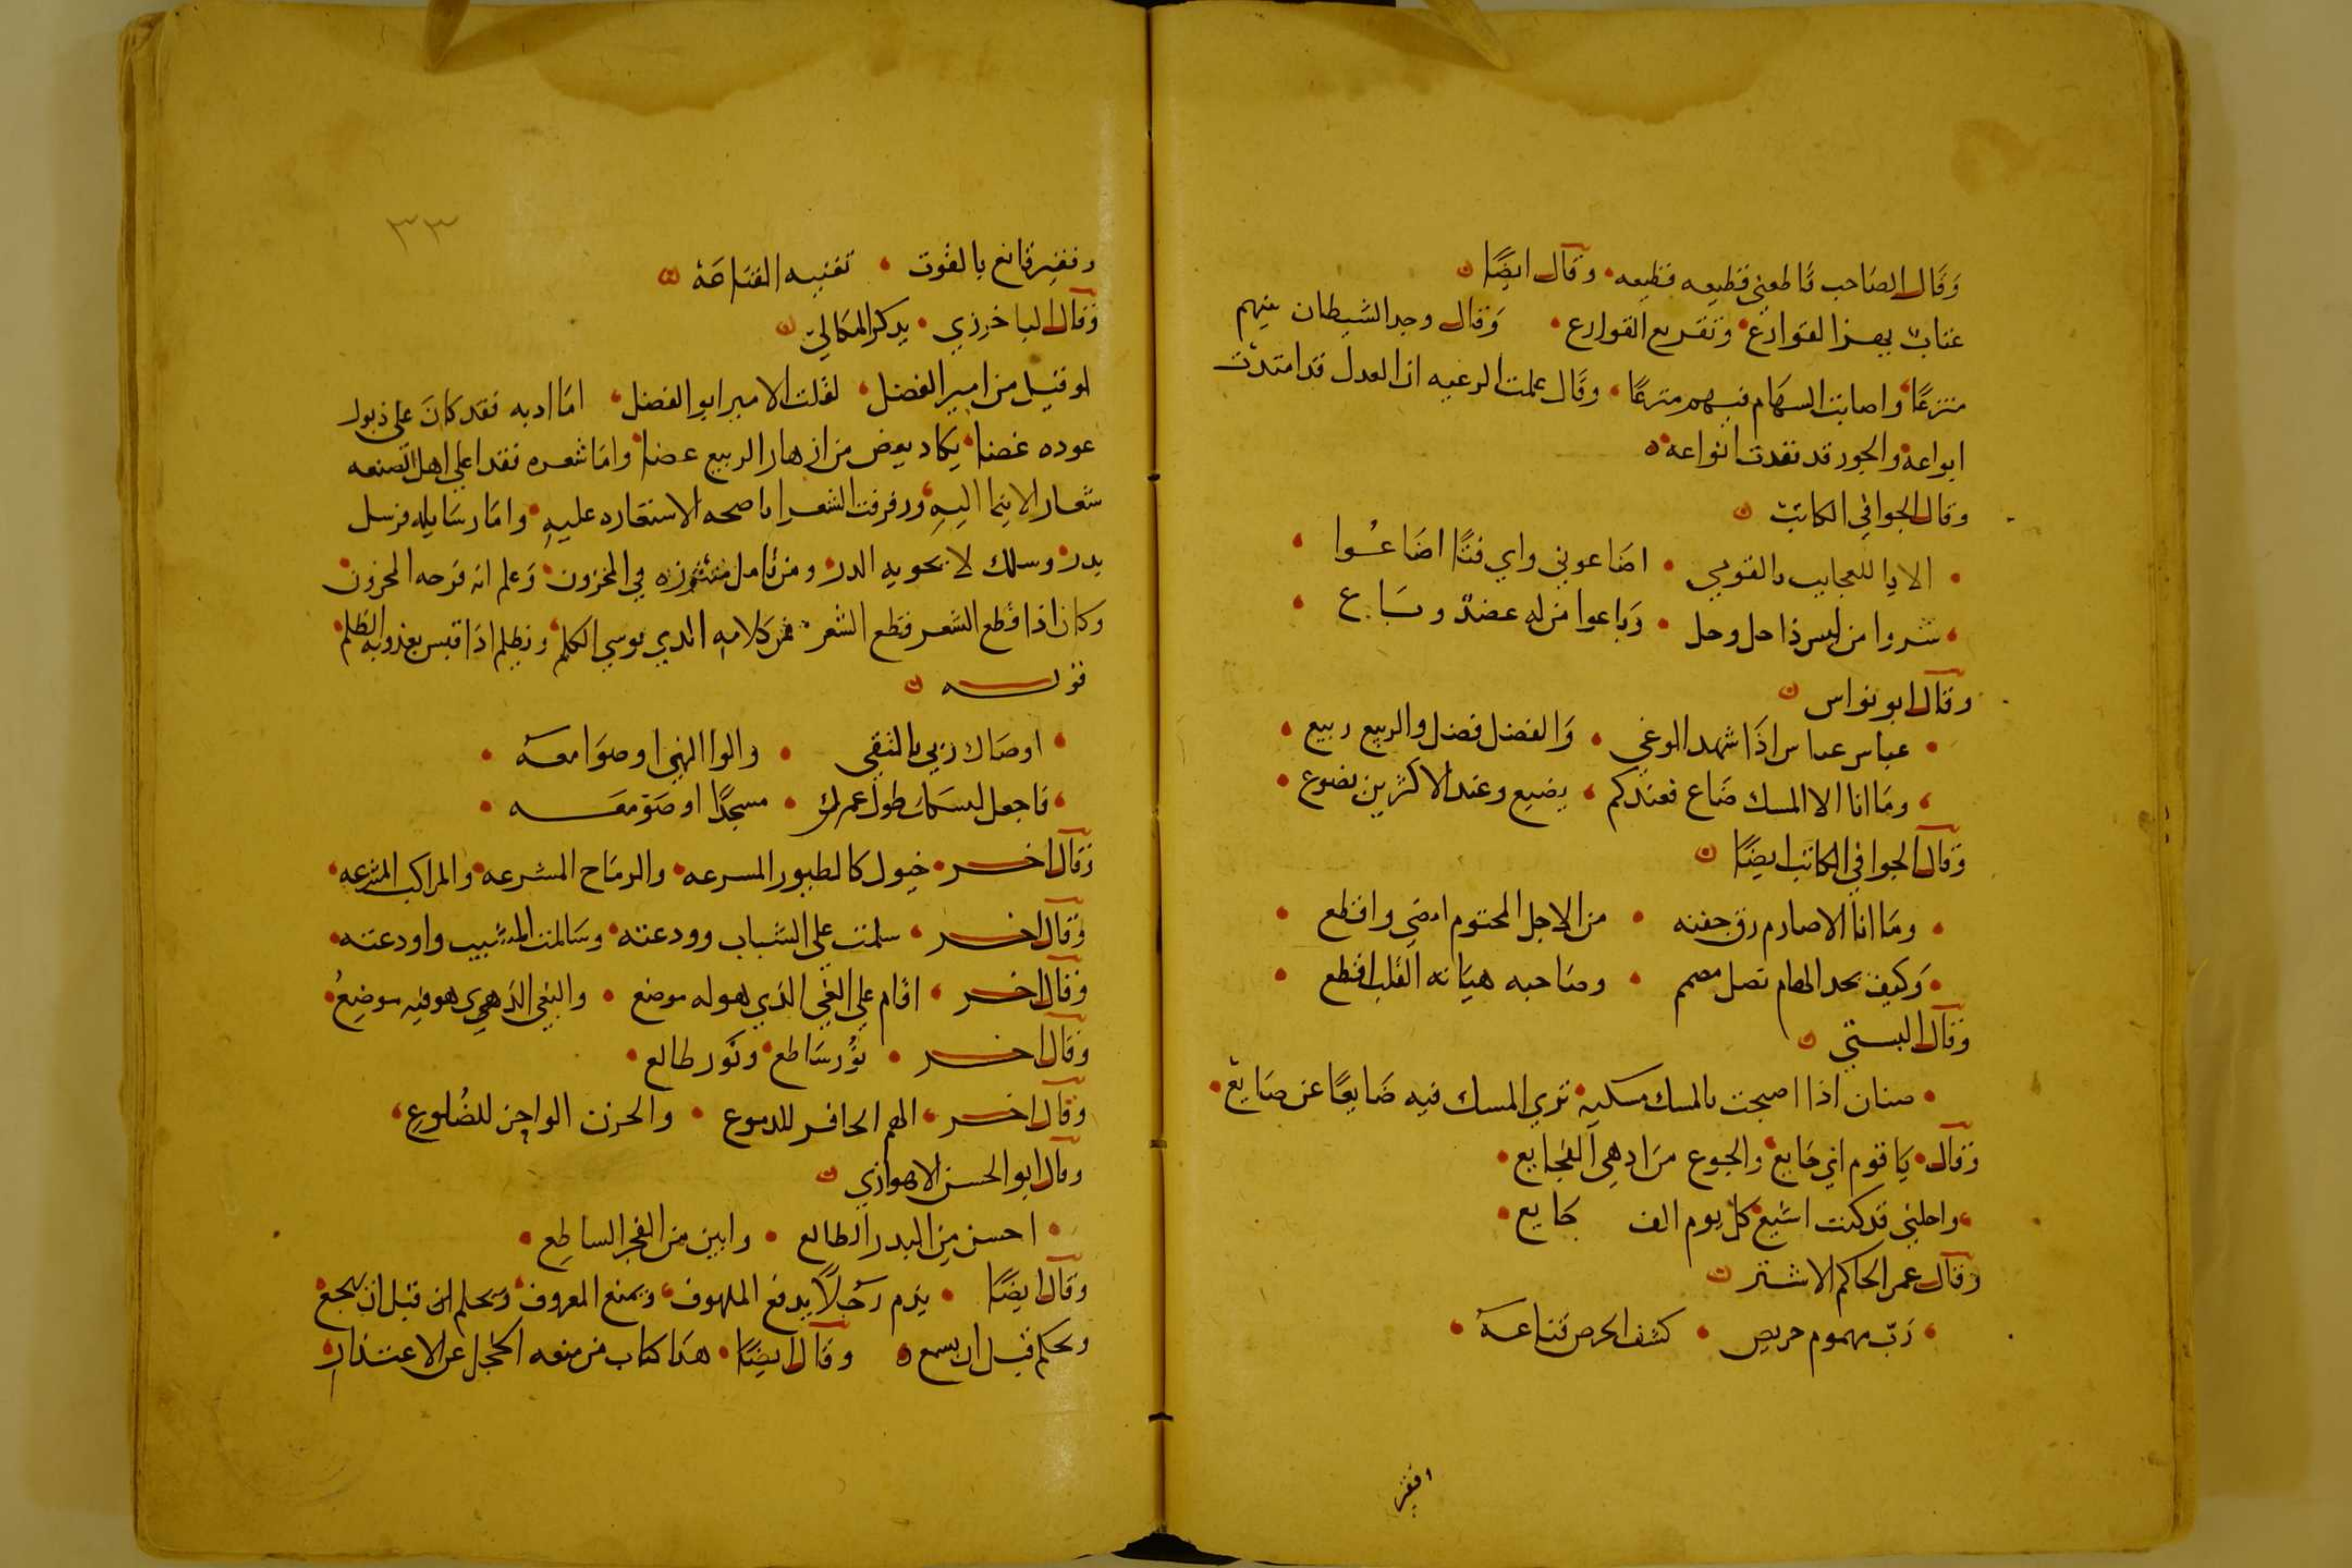 وَقَال الصَاحب قَاطعني قطيعه فظيعه • وقال ايضًا
عتاب يهز القوادع • وتقريع القوارع • وَقال وجد الشيطان بينهم
منزعًا • واصابت السهام فيهم منزعًا • وقَال علمت الرعيه ان العدل قد امتدت
ابواعه • والجور قد نفدت انواعه
وقال الجوافي الكاتب
الا يا للعجايب يا لقومي • اضَاعوني واي فتًا اضَاعُوا
شروا من ليس ذا حل وحل • وَباعوا من له عضد وبَاع
وقال ابو نواس
عباس عباس اذَا شهد الوغي • وَالفضل فضل والربيع ربيع
ومَا انا الا المسك ضَاع فعندكم • يضيع وعند الاكثرين يضوع
وَقال الجوافي الكاتب ايضًا
ومَا انا الا صارم رق جفنه • من الاجل المحتوم امضي واقطع
وَكيف بحد الهام نصل مصمم • وصَاحبه هيَابه القلب اقطع
وَقال البستي
صنان اذا اصبحت بالمسك مسكيه • تري المسك فيه ضَايعًا عن ضَايع
وَقال • يَا قوم اني جَايع • والجوع من ادهي الفجايع
واحلني قد كنت اشبع كل يوم الف جَايع
وقال عمر الحاكم الاشتر
رَبّ مهموم حريص • كشف الحرص قناعهْ
افقير
٣٣
وفقير قانع بالقوت • تغنيه القنَاعَهْ
وَقال الباخرزي • يذكر الميكالي
لو قيل من امير الفضل • لقلت الامير ابو الفضل • امَا ادبه فقد كانَ علي ذبول
عوده غضا • يكاد يعض من ازهار الربيع عضا • وامَا شعره فقد اعلي اهل الصنعه
شعار الانتما اليهِ • ورفرفت الشعرا باجنحه الاستعاره عليهِ • وامَا رسَايله فرسل
يدر • وسلك لا يحويه الدر • ومن تامل منثوره في المخزون • وَعلم انه فرحه المحزون
وكان اذا قطع الشعر قطع الشعر • فمن كَلامه الذي يوسي الكلم • ونظلم اذَا قيس بعذوبه الظلم
قوله
اوصَاك ربي بالتقي • والوا النهي اوصَوا معهْ
فَاجعل لنسكك طول عمرك • مسجدًا او صَومعَه
وَقال اخر • خيول كالطيور المسرعه • والرمَاح المشرعه • والمراكب المترعه
وَقال اخر • سلمت علي الشباب وودعته • وسَالمت المشيب واودعته
وقال اخر • اقام علي الغي الذي هو له موضع • والبغي الذي هو فيه موضِعُ
وقال اخر • نَوْر سَاطع • ونَور طالع
وقال اخر • الهم الحافر للدموع • والحزن الواجز للضُلوع
وقال ابو الحسن الاهوازي
احسن مِن البدر الطالع • وابين من الفجر الساطِع
وقال ايضًا • يذم رَجُلًا يدفع الملهوف • ويمنع المعروف • ويحلم ان قبل ان يهجع
ويحكم قبل ان يسمع • وقال ايضًا • هذا كتاب من منعه الخجل عن الاعتذار